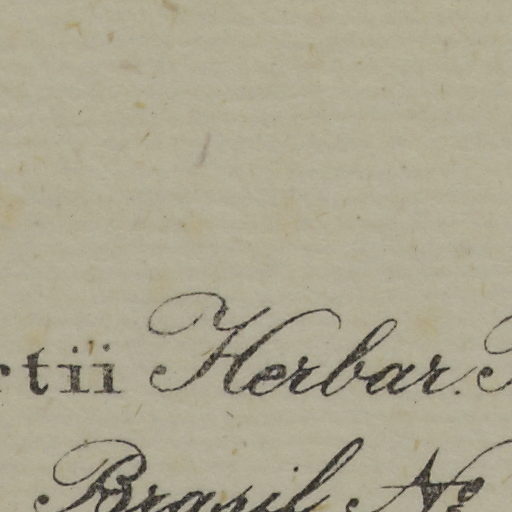 rtii Herbar.
Brasil. No